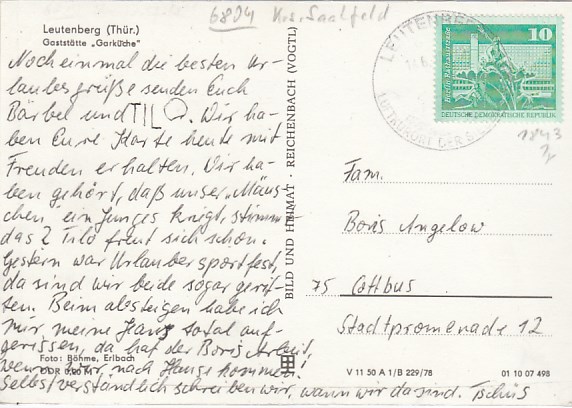 6804 Krs. Saalfeld
Leutenberg (Thür.)
Gaststätte „Garküche"
Noch einmal die besten Ur-
laubsgrüße senden Euch
Bärbel und TILO. Wir ha-
ben Eure Karte heute mit
Freuden erhalten. Wir ha-
ben gehört, daß unser „Mäus-
chen" ein Junges kriegt, stimmt
das? Tilo freut sich schon.
Gestern war Urlaubersportfest,
da sind wir beide sogar gerit-
ten. Beim absteigen habe ich
mir meine Jeans total auf-
gerissen, da hat der Boris Arbeit,
wenn wir nach Hause kommen!
Selbstverständlich schreiben wir, wann wir da sind. Tschüs
Foto: Böhme, Erlbach
DDR
BILD UND HEIMAT · REICHENBACH (VOGTL)
LEUTENBERG
LUFTKURORT DER
10
Berlin, Rathausstraße
DEUTSCHE DEMOKRATISCHE REPUBLIK
1843
Fam.
Boris Angelow
75 Cottbus
Stadtpromenade 12
V 11 50 A 1/B 229/78
01 10 07 498